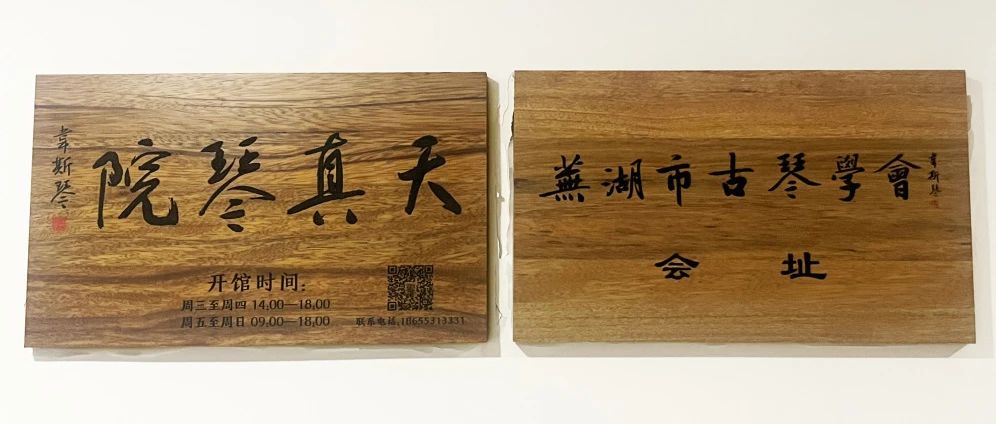 天真琴院
韋斯琴
开馆时间:
周三至周四 14:00—18:00
周五至周日 09:00—18:00
联系电话:18655313331
蕪湖市古琴學會
韋斯琴
会址